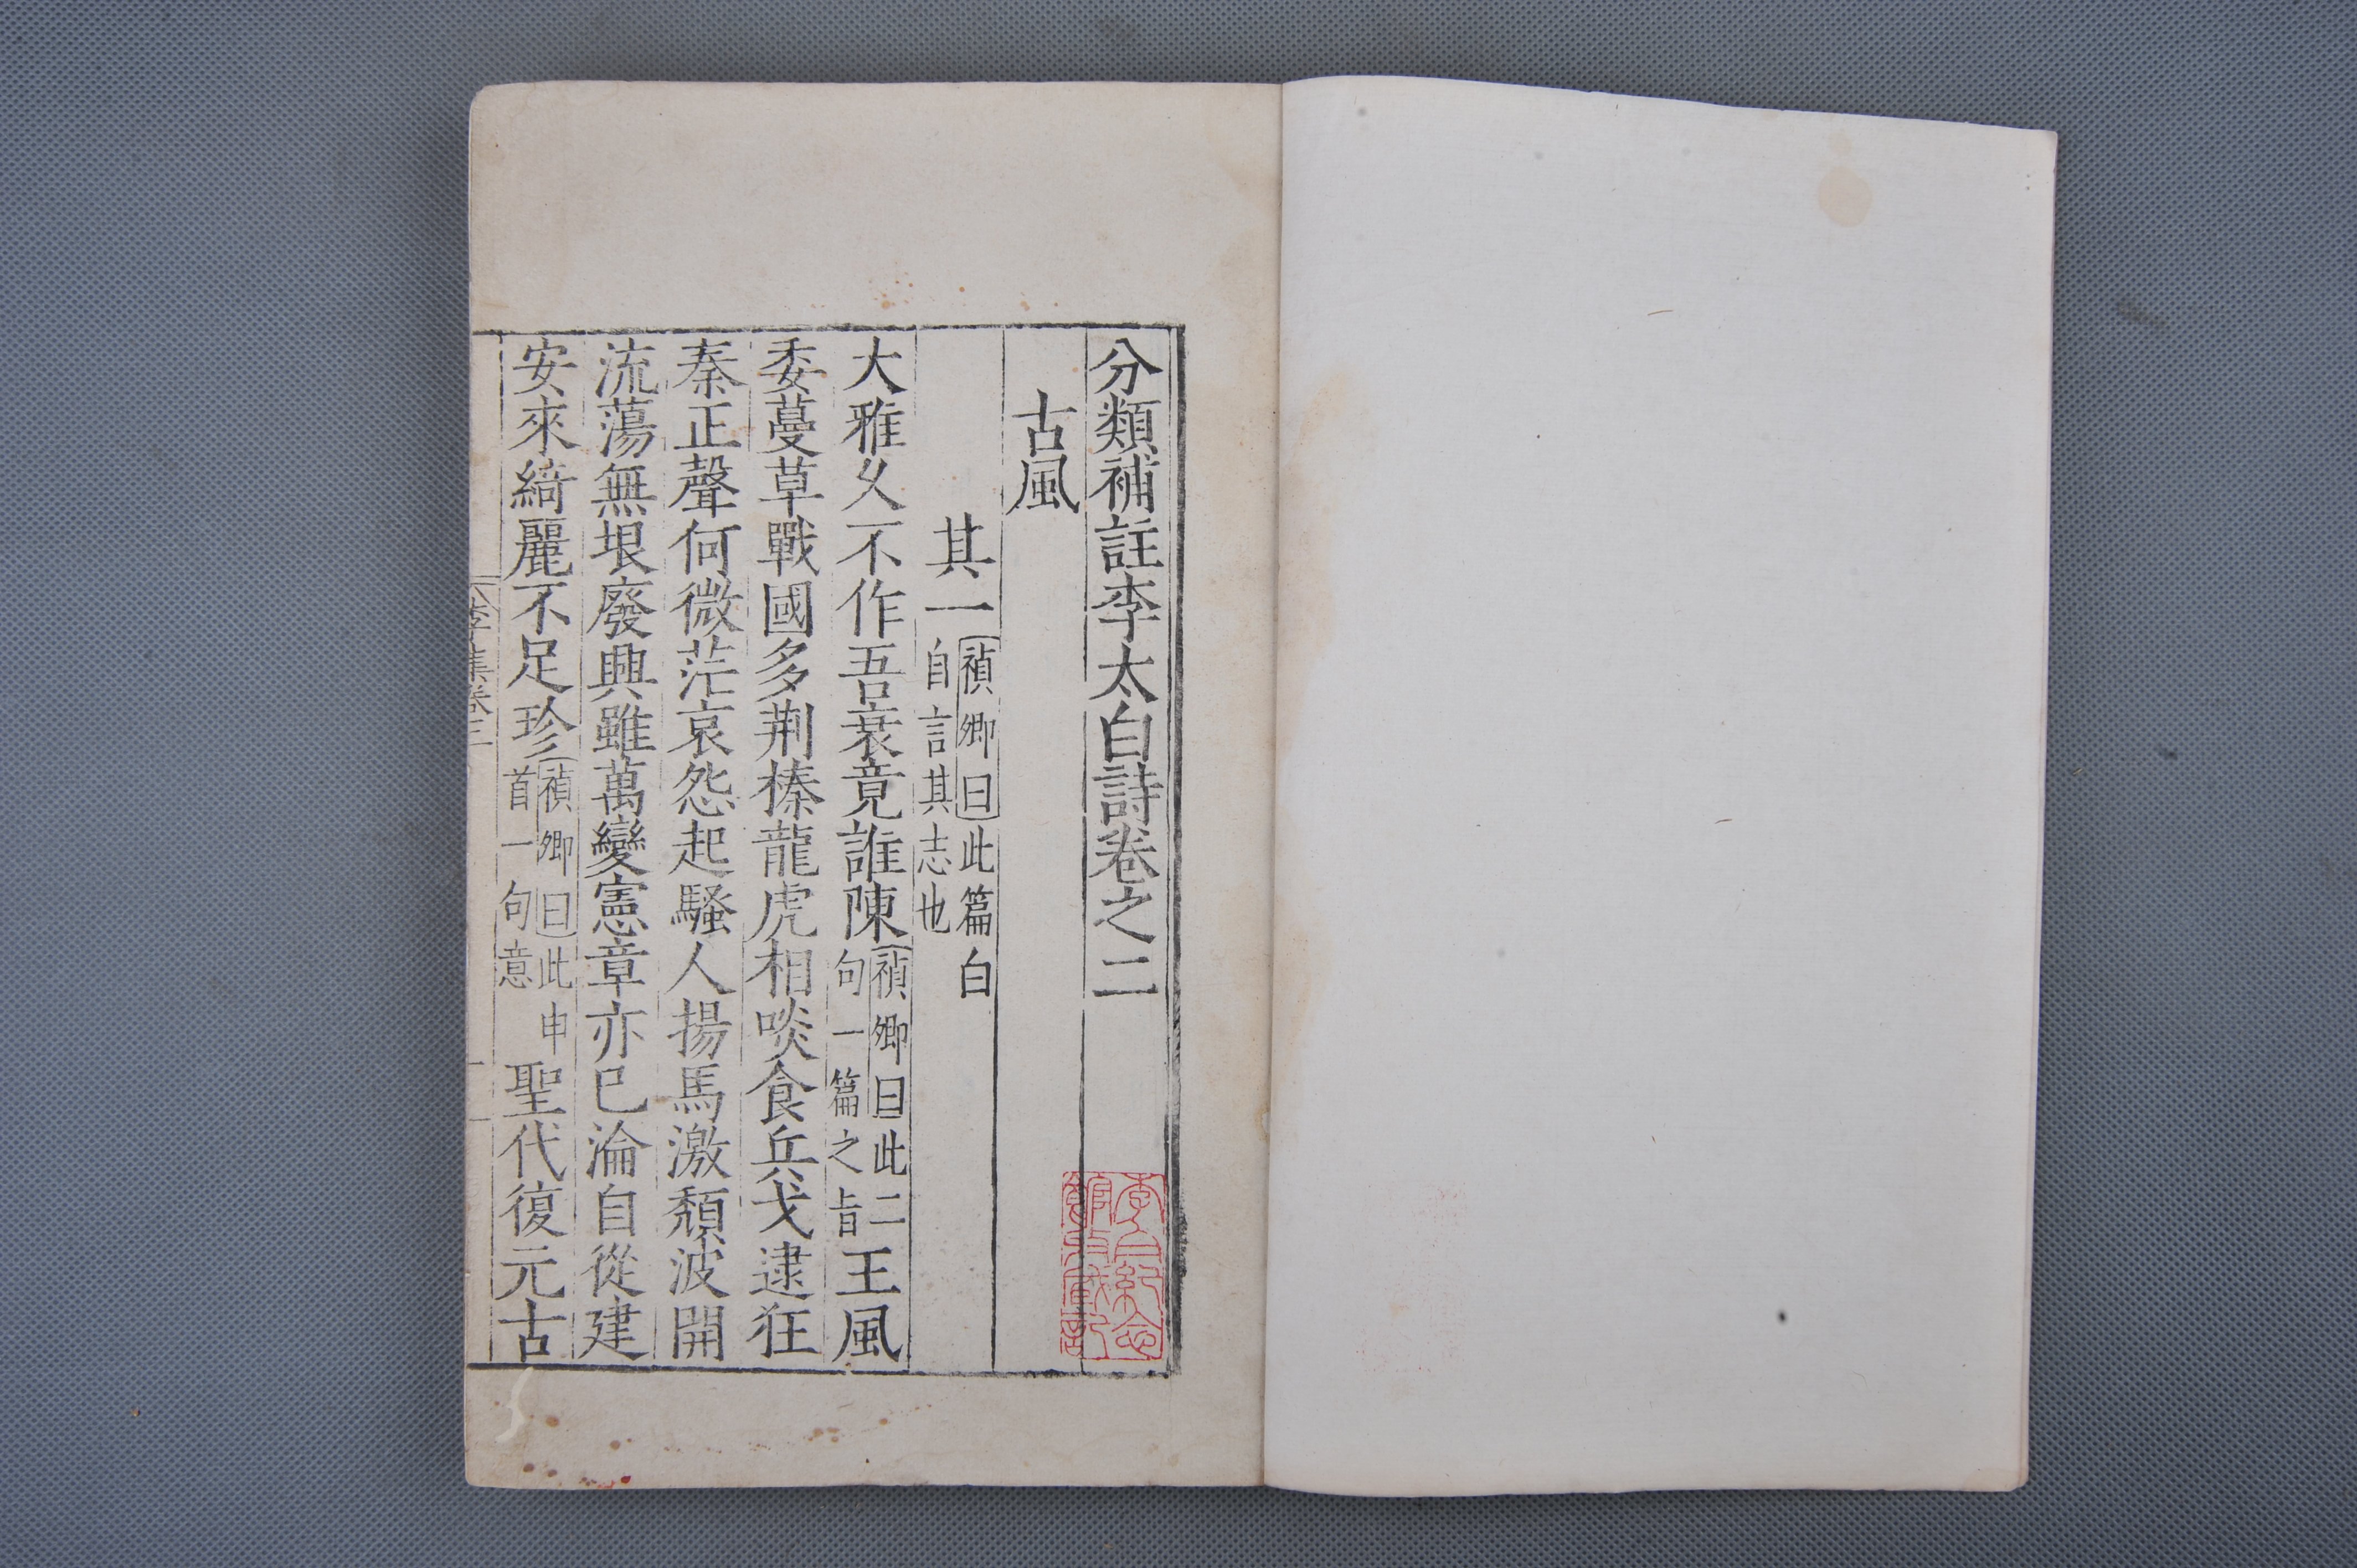 分類補註李太白詩卷之二
古風
其一 禎卿曰此篇白自言其志也
大雅乆不作吾衰竟誰陳 禎卿曰此二句一篇之㫖 王風
委蔓草戰國多荆榛龍虎相啖食兵戈逮狂
秦正聲何微茫哀怨起騷人揚馬激頹波開
流蕩無垠廢興雖萬變憲章亦巳淪自從建
安來綺麗不足珍 禎卿曰此申首一句意 聖代復元古
李集卷二
李白紀念館收藏記